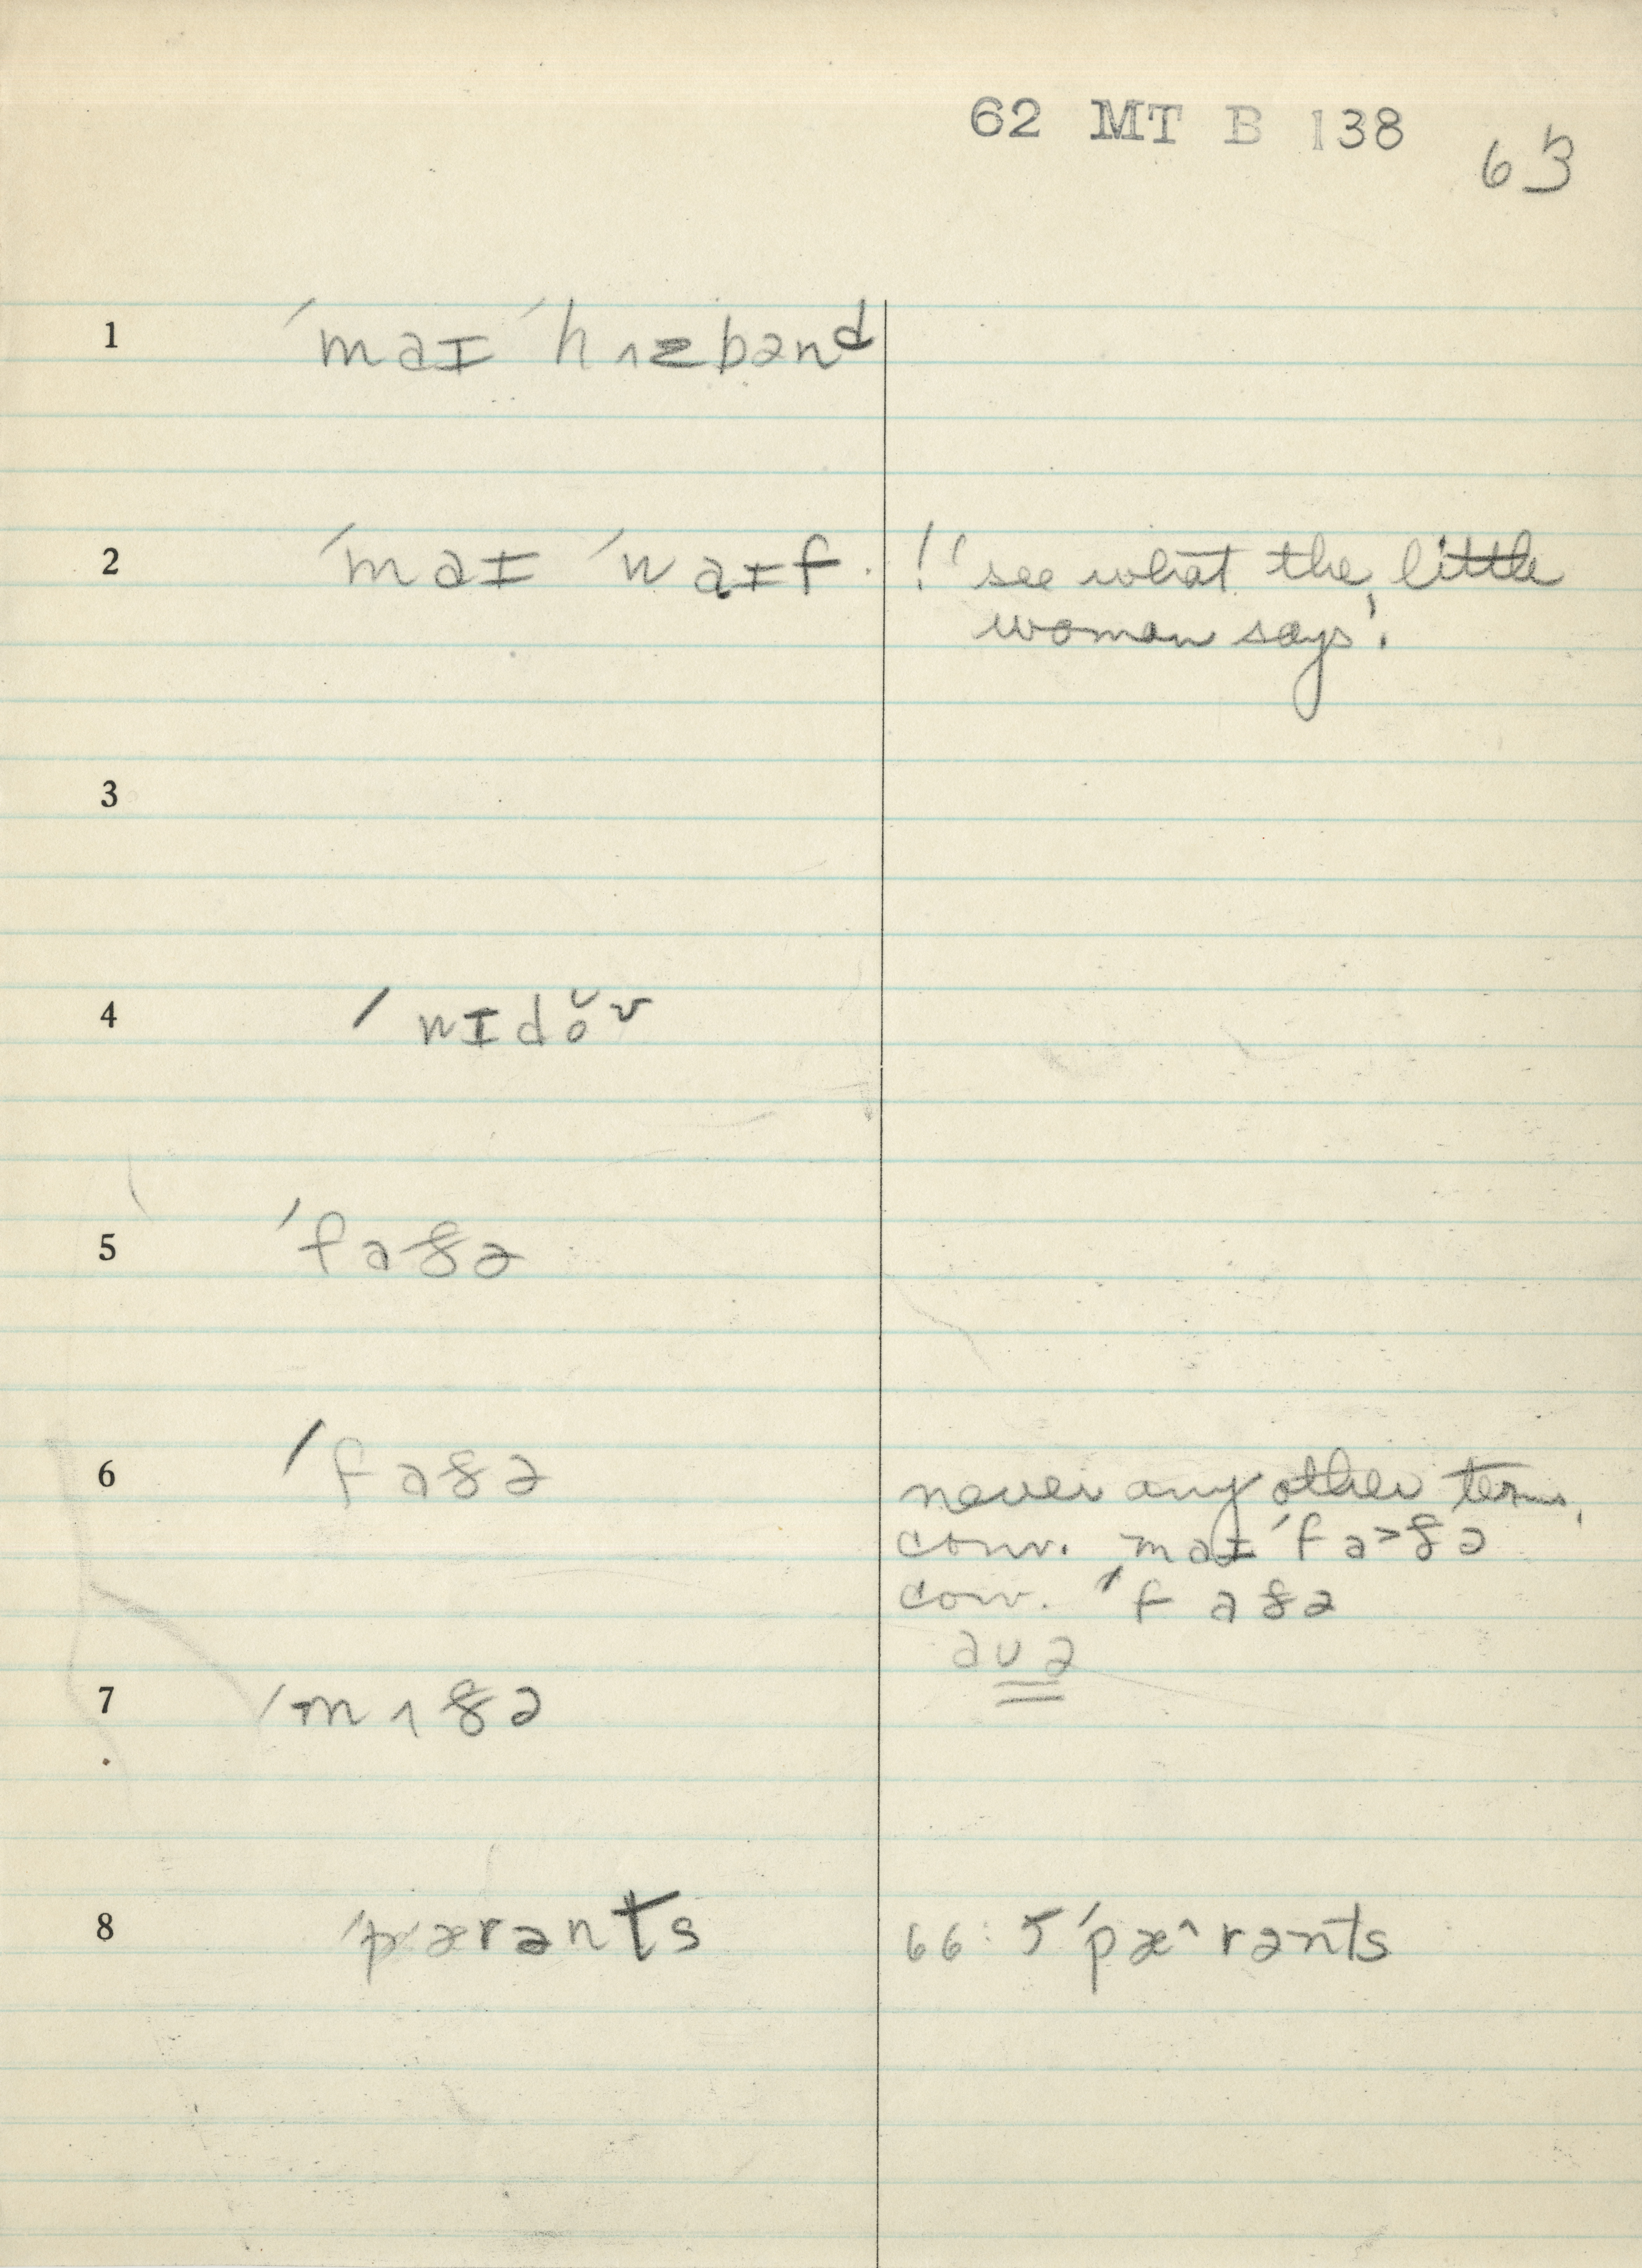 62 MT B 138
63
1 ˈmaɪ ˈhʌzbənᵈ
2 ˈmaɪ ˈwaɪf. !ˈ see what the little
woman says'.
3
4 ˈwɪdŏ˞
5 ˈfaðə
6 ˈfaðə never any other term,
conv. maɪ ˈfa>ðə
conv. ˈfaðə
7 ˈmʌðə
8 ˈpærənts 66:5 ˈpæ^rənts